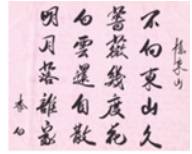 憶東山
不向東山久
薔薇幾度花
白雲還自散
明月落誰家
李白